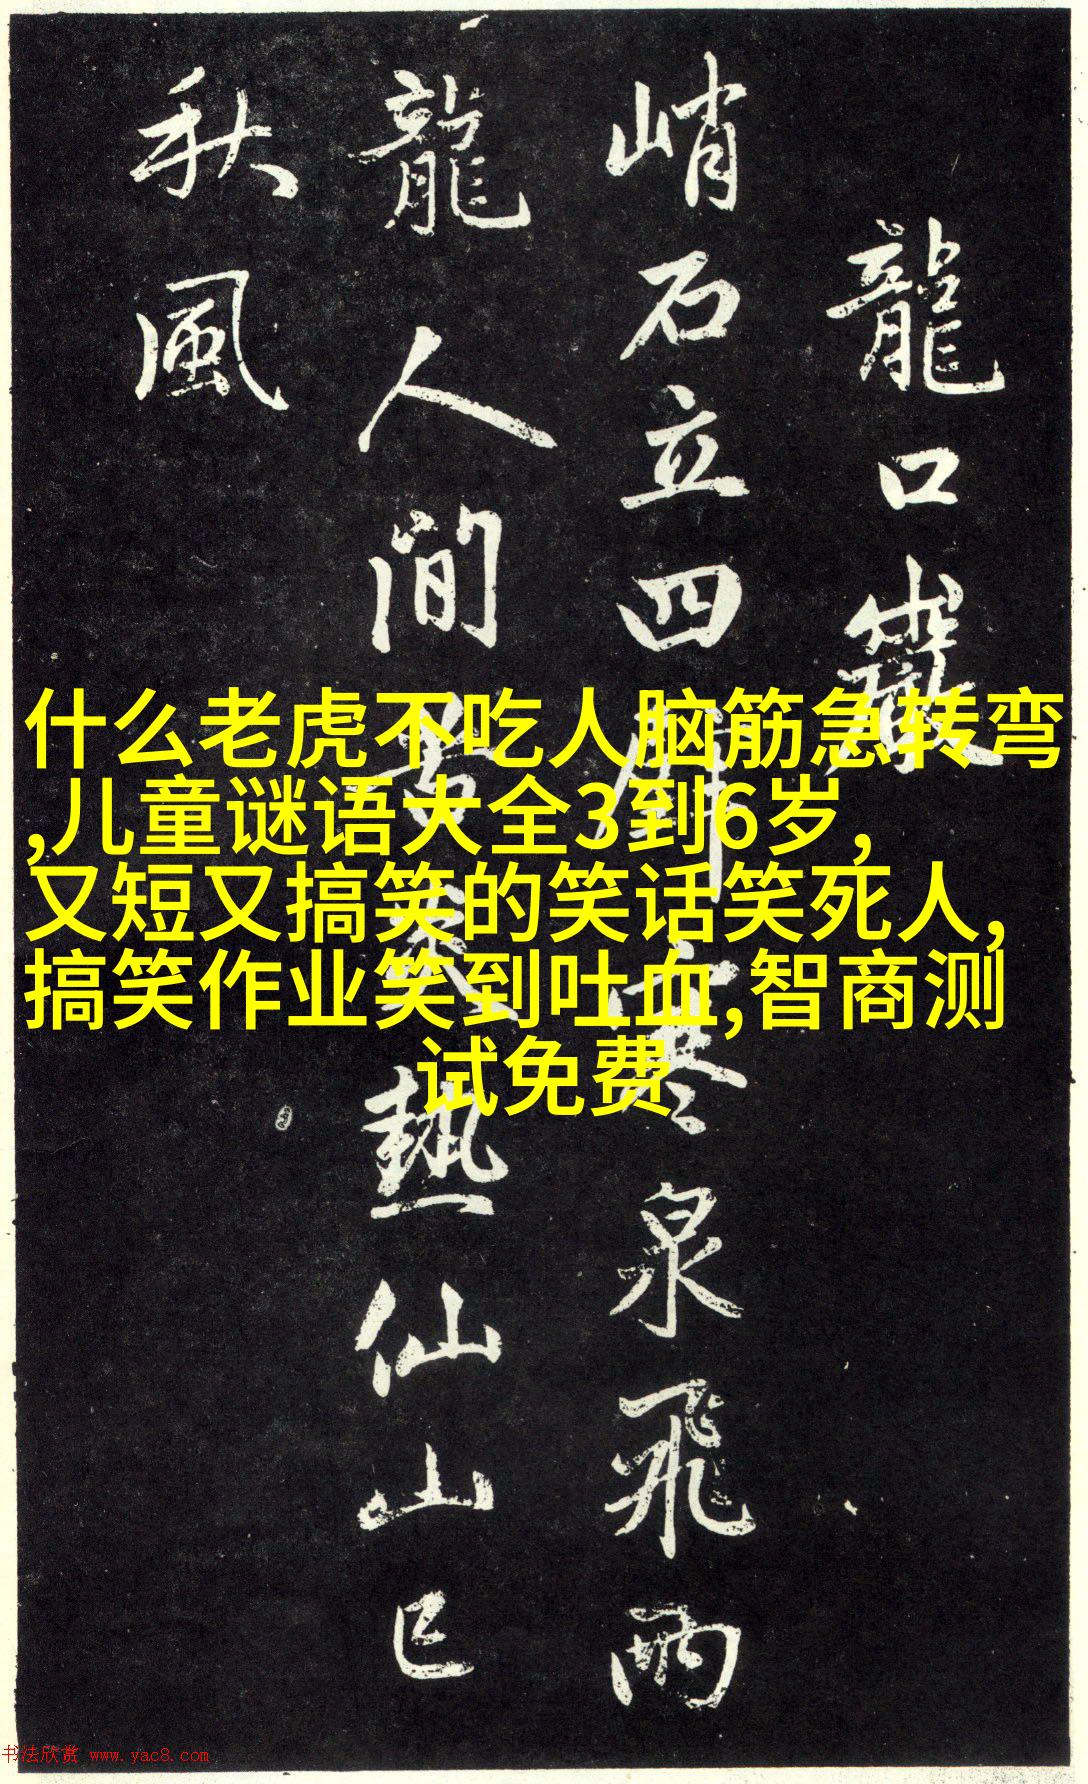 龍口巖
峭石立四壁寒泉飛兩
龍人間苦炎熱仙山已
秋風
什么老虎不吃人脑筋急转弯
,儿童谜语大全3到6岁,
又短又搞笑的笑话笑死人,
搞笑作业笑到吐血,智商测
试免费
书法欣赏 www.yac8.com